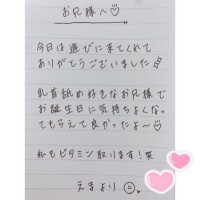 お兄様へ♡
今日は遊びに来てくれて
ありがとうございました
乳首舐め好きなお兄様で
お誕生日に気持ちよくなっ
てもらえて良かったよ〜♡
私もビタミン取ります!笑
えまより